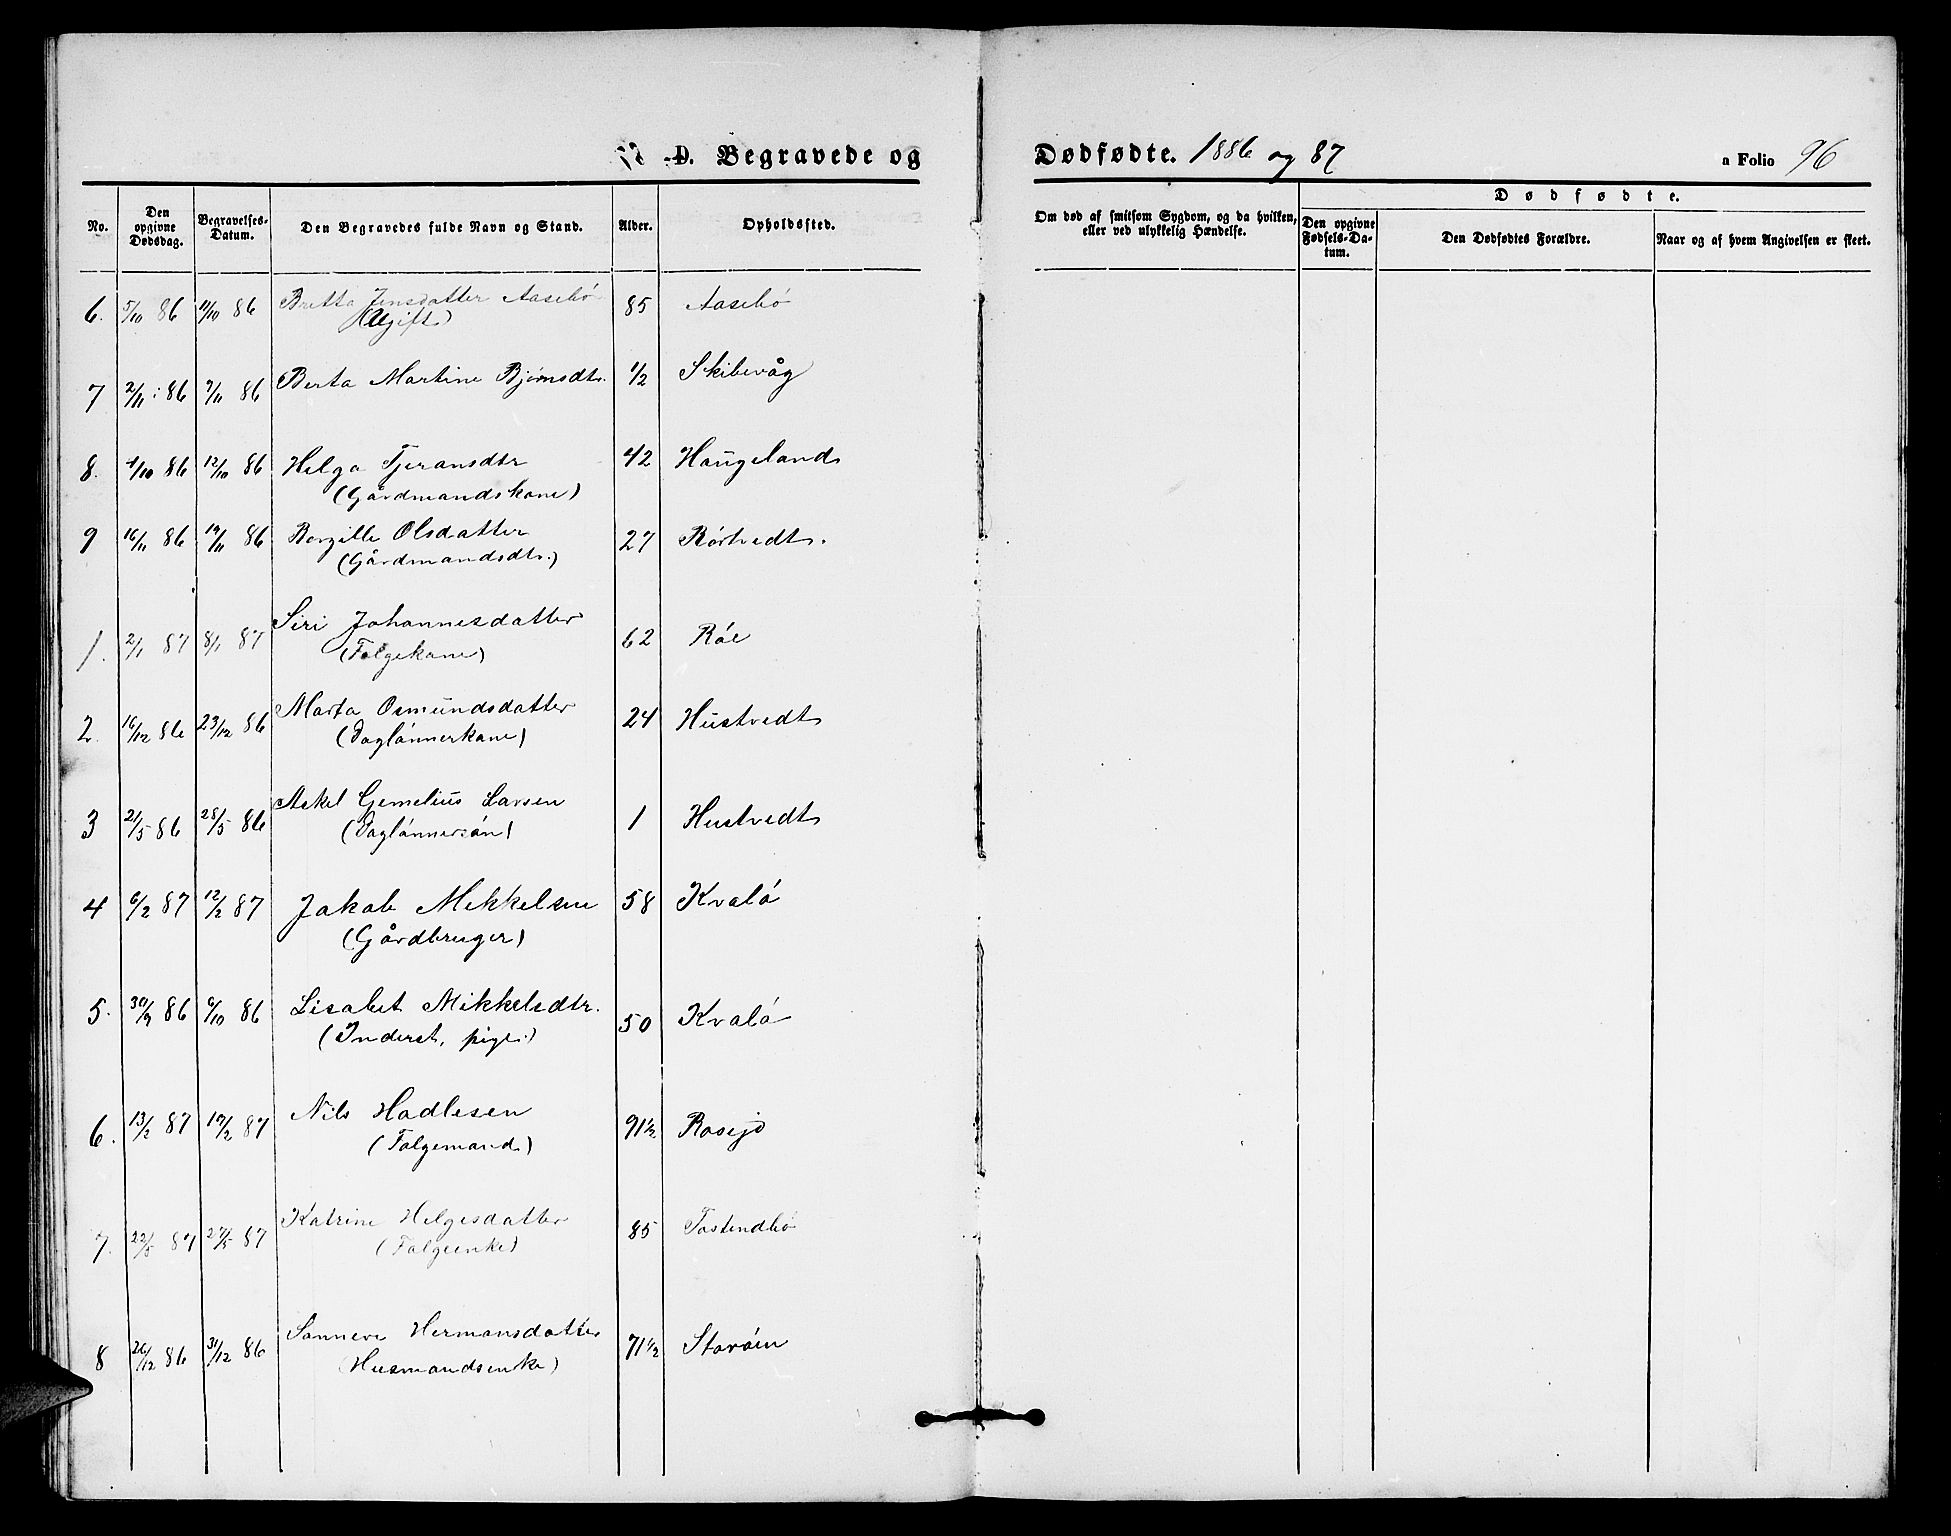 D. Begravede og Dødfødte. 1886 og 87
a Folio 96
No.
Den opgivne Dødsdag.
Begravelses-Datum.
Den Begravedes fulde Navn og Stand.
Alder.
Opholdsted.
Om død af smitsom Sygdom, og da hvilken, eller ved ulykkelig Hændelse.
Dødfødte.
Den opgivne Fødsels-Datum.
Den Dødfødtes Forældre.
Naar og af hvem Angivelsen er skeet.
6. 5/10 86 11/10 86 Britta Jensdatter Aasebö 85 Aasebö
(Ugift)
7 2/11 86 9/11 86 Berta Martine Bjørnsdtr. 1/2 Skibevåg
8. 4/10 86 12/10 86 Helga Tjeransdtr 42 Haugeland
(Gårdmandskone)
9 16/11 86 19/11 86 Borgille Olsdatter 27 Rörtvedt.
(Gårdmandsdtr.)
1. 2/1 87 8/1 87 Siri Johannesdatter 62 Röe
(Folgekone)
2. 16/12 86 23/12 86 Marta Osmundsdatter 24 Hustvedt
(Daglönnerkone)
3 21/5 86 28/5 86 Askel Gemelius Larsen 1 Hustvedt
(Daglönnersön)
4 6/2 87 12/2 87 Jakob Mikkelsen 58 Kvalö
(Gårdbruger)
5. 30/9 86 6/10 86 Lisabet Mikkelsdtr. 50 Kvalö
(Inderst, pige.)
6. 13/2 87 19/2 87 Nils Hadlesen 91 1/2 Rosejd
(Folgemand)
7. 22/5 87 27/5 87 Katrine Helgesdatter 85 Tostendbö
(Folgeenke)
8 26/12 86 31/12 86 Sanneve Hermansdatter 71 1/2 Storöen
(Husmandsenke)